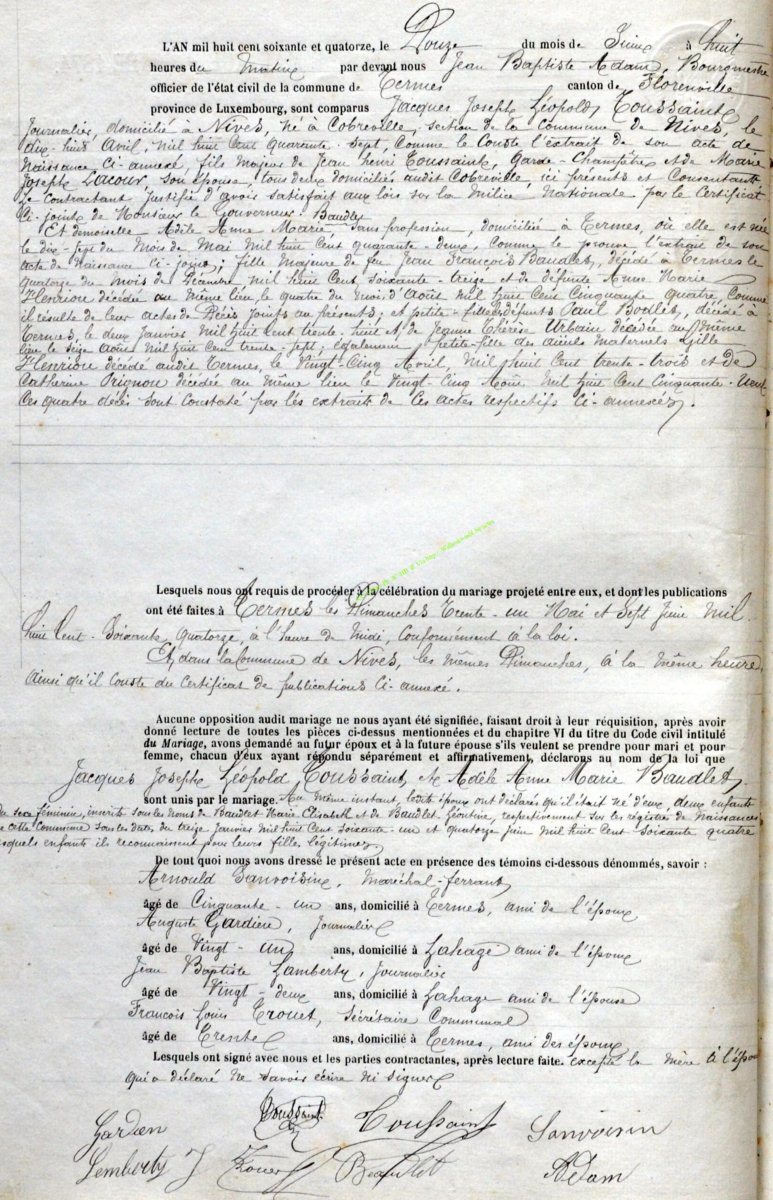 L'AN mil huit cent soixante et quatorze, le Douze du mois de Juin à huit
heures du Matin par devant nous Jean Baptiste Adam, Bourgmestre
officier de l'état civil de la commune de Termes canton de Florenville
province de Luxembourg, sont comparus Jacques Joseph Léopold Toussaint
Journalier, domicilié à Nives, né à Cobreville, section de la Commune de Nives, le
dix-huit Avril, Mil huit Cent quarante-sept, comme le conste l'extrait de son acte de
Naissance Ci-annexé, fils Majeur de Jean henri Toussaint, Garde-Champêtre et de Marie
Joseph Lacour son épouse, tous deux domiciliés audit Cobreville, ici présents et Consentants
Le Contractant Justifié d'avoir satisfait aux lois sur la Milice Nationale par le Certificat
Ci-joint de Monsieur le Gouverneur. Baudlet
Et demoiselle Adèle Anne Marie, sans profession, domiciliée à Termes, où elle est née
le dix-sept du Mois de Mai Mil huit Cent quarante-deux, comme le prouve l'extrait de son
acte de Naissance ci-joint; fille Majeure de feu Jean François Baudlet, décédé à Termes le
quatorze du mois de Décembre Mil huit Cent soixante-treize et de défunte Anne Marie
Henrion décédée au Même lieu le quatre du mois d'Août Mil huit Cent Cinquante quatre, comme
il résulte de leur actes de décès joints au présent; et petite-fille des défunts Paul Bodlet, décédé à
Termes, le deux Janvier Mil huit Cent trente-huit et de Jeanne Thérèse Urbain décédée au même
lieu le seize Août Mil huit Cent trente-sept; également petite-fille des aïeuls Maternels Gille
Henrion décédé audit Termes, le Vingt-Cinq Avril, Mil huit Cent trente-trois et de
Catherine Orignon décédée au Même lieu le Vingt-Cinq Mil huit Cent Cinquante-
Ces quatre décès sont Constatés par les extraits de Ces actes respectifs Ci-annexés.
Lesquels nous ont requis de procéder à la célébration du mariage projeté entre eux, et dont les publications
ont été faites à Termes les Dimanches trente-un Mai et Sept Juin Mil
huit Cent-Soixante quatorze, à l'heure de Midi, Conformément à la loi.
Et dans la Commune de Nives, les mêmes Dimanches, à la Même heure,
Ainsi qu'il Conste du Certificat de publications Ci-annexé.
Aucune opposition audit mariage ne nous ayant été signifiée, faisant droit à leur réquisition, après avoir
donné lecture de toutes les pièces ci-dessus mentionnées et du chapitre VI du titre du Code civil intitulé
du Mariage, avons demandé au futur époux et à la future épouse s'ils veulent se prendre pour mari et pour
femme, chacun d'eux ayant répondu séparément et affirmativement, déclarons au nom de la loi que
Jacques Joseph Léopold Toussaint, et Adèle Anne Marie Baudlet
sont unis par le mariage. Au Même instant, lesdits époux ont déclarés qu'il était né d'eux, deux enfants
du sexe féminin, inscrits sous les noms de Baudlet Marie Elisabeth et de Baudlet Léontine, respectivement sur les registres de Naissances
de cette Commune sous les dates du treize Janvier Mil huit Cent Soixante-un et quatorze Juin Mil huit Cent soixante quatre
lesquels enfants ils reconnaissent pour leurs filles légitimes
De tout quoi nous avons dressé le présent acte en présence des témoins ci-dessous dénommés, savoir :
Arnould Sanvoisin, Maréchal-ferrant
âgé de Cinquante-un ans, domicilié à Termes, ami de l'époux
Auguste Gardien, Journalier
âgé de Vingt-un ans, domicilié à Lahage ami de l'époux
Jean Baptiste Lamberty, Journalier
âgé de Vingt-deux ans, domicilié à Lahage ami de l'épouse
François Louis Trouet, Sécrétaire Communal
âgé de Trente ans, domicilié à Termes, ami des époux
Lesquels ont signé avec nous et les parties contractantes, après lecture faite. excepté la Mère à l'époux
qui a déclaré ne savoir écrire Ni signer
Toussaint Toussaint Sanvoisin
Lemberty J Baudlet Adam